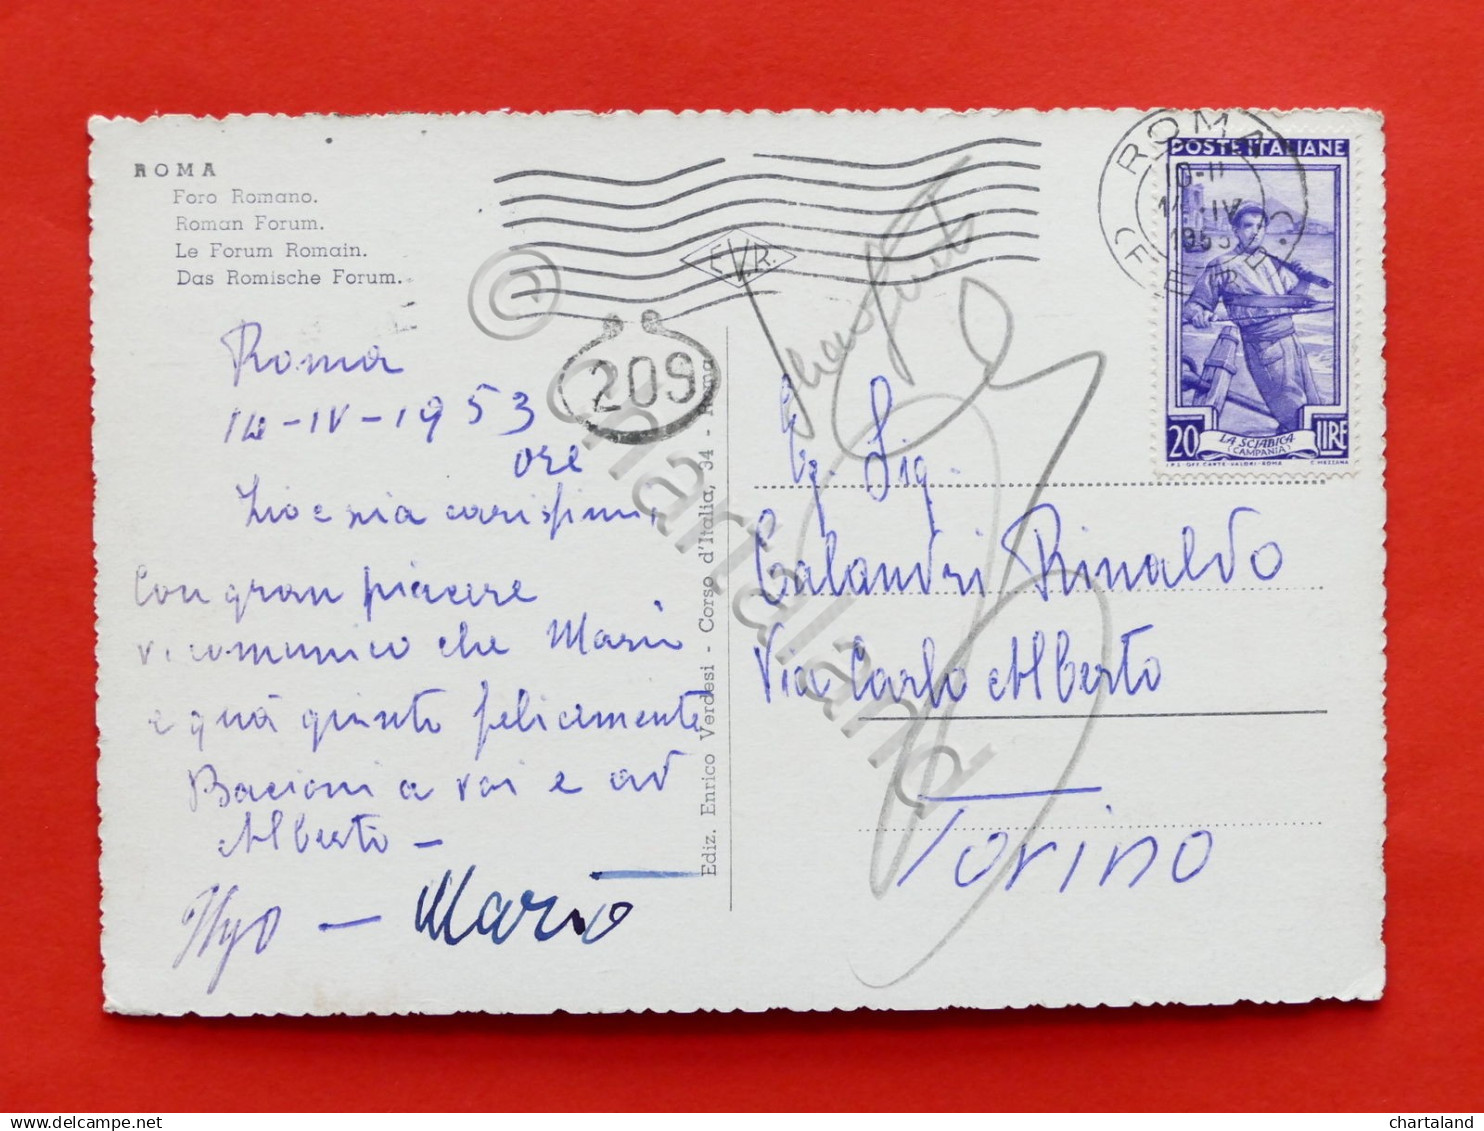 ROMA
Foro Romano.
Roman Forum.
Le Forum Romain.
Das Romische Forum.
Roma
14-IV-1953
ore
Zio e zia carissimi,
Con gran piacere
vi comunico che Mario
e quà giunto felicemente
Bacioni a voi e ad
Alberto -
- Mario
E.V.R.
209
Ediz. Enrico Verdesi - Corso d'Italia, 34 - Roma
ROMA
10-11
IV
1953
POSTE ITALIANE
20 LIRE
LA SCIABICA
(CAMPANIA)
I.P.S. OFF. CARTE-VALORI-ROMA
C. MEZZANA
Eg. Sig.
Calandri Rinaldo
Via Carlo Alberto
Torino
© chartaland
chartaland
delcampe.net